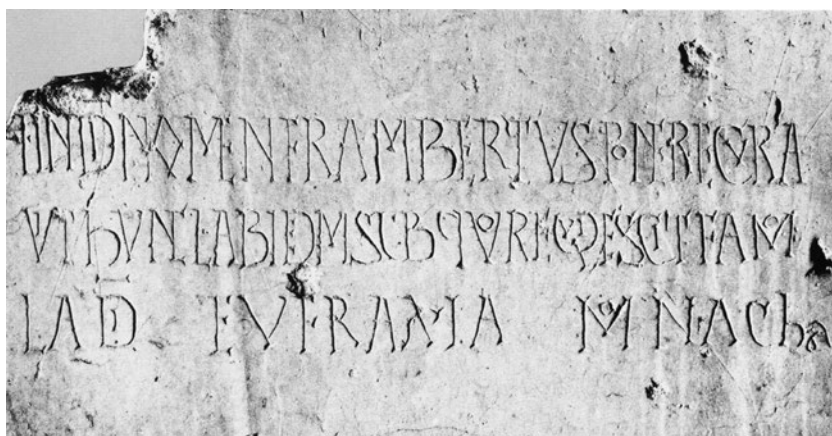 † IN DI NOMEN FRAMBERTVS PONERE QVRA
VIT HVNC LABIDEM SVB QVO REQVIESCIT FAMO
LA DI EVFRASIA MONACHA